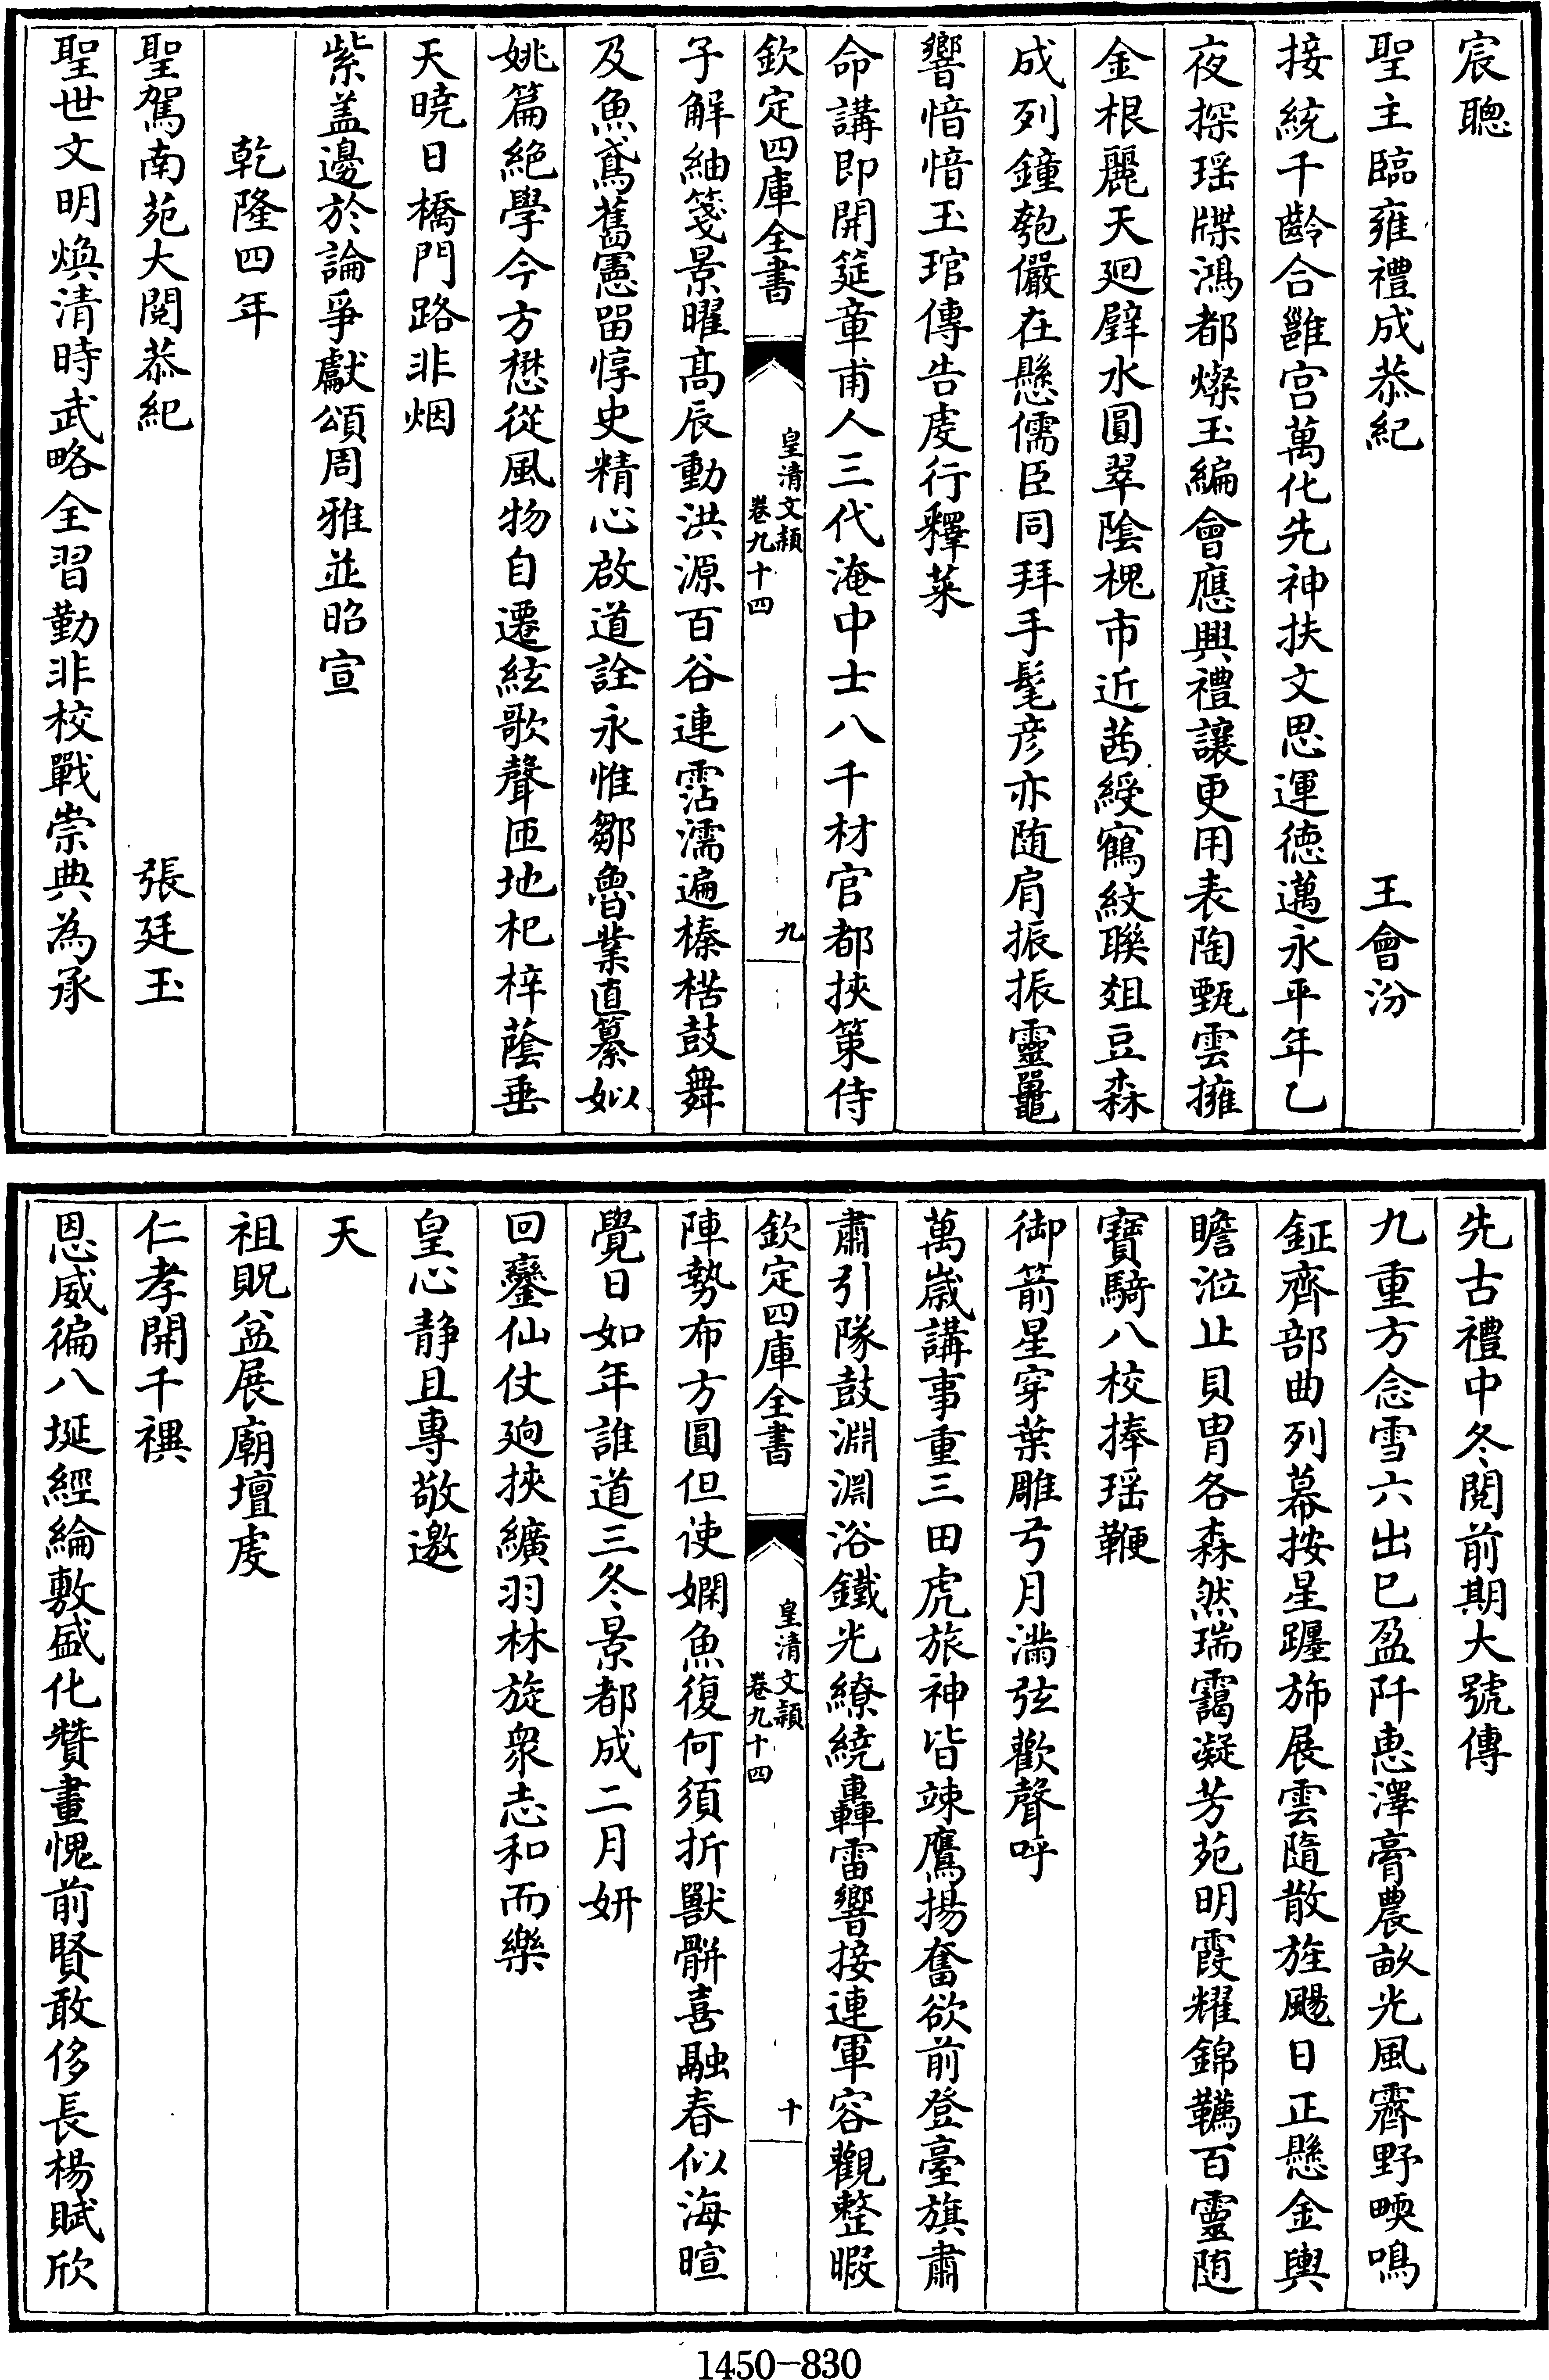 宸聰
聖主臨雍禮成恭紀　王會汾
接統千齡合雝宫萬化先神扶文思運德邁永平年乙
夜探瑶牒鴻都燦玉編會應興禮讓更用表陶甄雲擁
金根麗天廻璧水圓翠陰槐市近茜綬寫紋聨爼豆森
成列鐘匏儼在懸儒臣同拜手髦彦亦随肩振振靈鼉
響愔愔玉琯傳告䖍行釋菜
命講即開筵章甫人三代淹中士八千材官都挾策侍
欽定四庫全書
皇清文穎
卷九十四
九
子解紬箋景曜髙辰動洪源百谷連霑濡遍榛楛鼓舞
及魚鳶舊憲留惇史精心啟道詮永惟鄒魯業直纂姒
姚篇絶學今方懋從風物自遷絃歌聲匝地杞梓蔭垂
天曉日橋門路非烟
紫盖邊於論爭獻頌周雅並昭宣
乾隆四年
聖駕南苑大閲恭紀　張廷玉
聖世文明煥清時武略全習勤非校戰崇典為承
先古禮中冬閲前期大號傳
九重方念雪六出已盈阡惠澤膏農畝光風霽野㬇鳴
鉦齊部曲列幕按星躔斾展雲隨散旌颺日正懸金輿
瞻涖止貝胄各森然瑞靄凝芳苑明霞耀錦韉百靈随
寶騎八校捧瑶鞭
御箭星穿葉雕弓月滿弦歡聲呼
萬嵗講事重三田虎旅神皆竦鷹揚奮欲前登臺旗肅
肅引隊鼓淵淵浴鐵光繚繞轟雷響接連軍容觀整暇
欽定四庫全書
皇清文穎
卷九十四
十
陣勢布方圓但使嫻魚復何須折獸骿喜融春似海暄
覺日如年誰道三冬景都成二月妍
回鑾仙仗廻挾纊羽林旋衆志和而樂
皇心静且專敬邀
天
祖貺益展廟壇䖍
仁孝開千禩
恩威徧八埏經綸敷盛化贊畫愧前賢敢侈長楊賦欣
1450-830